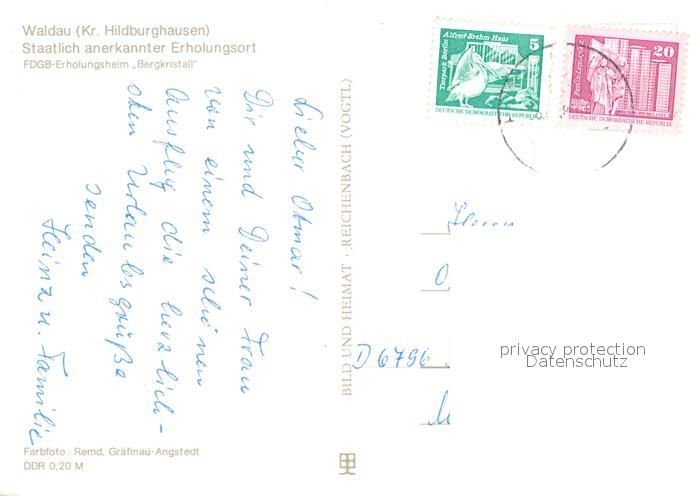 Waldau (Kr. Hildburghausen)
Staatlich anerkannter Erholungsort
FDGB-Erholungsheim „Bergkristall"
Lieber Otmar!
Dir und Deiner Frau
von einem schönen
Ausflug die herzlich-
sten Urlaubsgrüße
senden
Heinz u. Familie
Farbfoto: Remd, Gräfinau-Angstedt
DDR 0,20 M
BILD UND HEIMAT · REICHENBACH (VOGTL)
Tierpark Berlin
Alfred-Brehm-Haus
5
DEUTSCHE DEMOKRATISCHE REPUBLIK
Berlin-Leninplatz
20
DEUTSCHE DEMOKRATISCHE REPUBLIK
Herrn
O
D 6796
privacy protection
Datenschutz